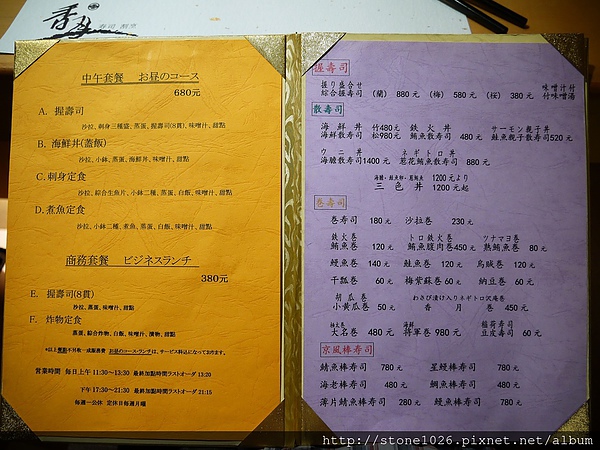 壽司 割烹
中午套餐 お昼のコース
680元
A. 握壽司
沙拉、刺身三種盛、蒸蛋、握壽司(8貫)、味噌汁、甜點
B. 海鮮丼(蓋飯)
沙拉、小鉢、蒸蛋、海鮮丼、味噌汁、甜點
C. 刺身定食
沙拉、綜合生魚片、小鉢二種、蒸蛋、白飯、味噌汁、甜點
D. 煮魚定食
沙拉、小鉢二種、煮魚、蒸蛋、白飯、味噌汁、甜點
商務套餐 ビジネスランチ
380元
E. 握壽司(8貫)
沙拉、蒸蛋、味噌汁、甜點
F. 炸物定食
蒸蛋、綜合炸物、白飯、味噌汁、漬物、甜點
*以上餐點不另收一成服務費 お昼のコース・ランチは、サービス料込になっております。
營業時間 每日上午 11:30~13:30 最終加點時間ラストオーダ 13:20
下午 17:30~21:30 最終加點時間ラストオーダ 21:15
每週一公休 定休日毎週月曜
握壽司
握り盛合せ 味噌汁付
綜合握壽司 (蘭) 880元 (梅) 580元 (桜) 380元 付味噌湯
散壽司
海鮮丼 竹480元 鉄火丼 サーモン親子丼
海鮮散壽司 松980元 鮪魚散壽司 480元 鮭魚親子散壽司520元
ウニ丼 ネギトロ丼
海膽散壽司1400元 蔥花鮪魚散壽司 880元
1200元より
三色丼 1200元起
巻壽司
巻壽司 180元 沙拉巻 230元
鉄火巻 トロ鉄火巻 ツナマヨ巻
鮪魚巻 120元 鮪魚腹肉巻450元 熟鮪魚巻 80元
鰻魚巻 140元 鮭魚巻 120元 烏賊巻 120元
干瓢巻 60元 梅紫蘇巻 60元 納豆巻 60元
胡瓜巻 わさび漬け入りネギトロ沢庵巻
小黄瓜巻 50元 香月巻 450元
海鮮 稲荷壽司
大名巻 480元 将軍巻 980元 豆皮壽司 60元
京風棒壽司
鯖魚棒壽司 780元 星鰻棒壽司 780元
海老棒壽司 480元 鯛魚棒壽司 480元
薄片鯖魚棒壽司 280元 鰻魚棒壽司 780元
http://stone1026.pixnet.net/album